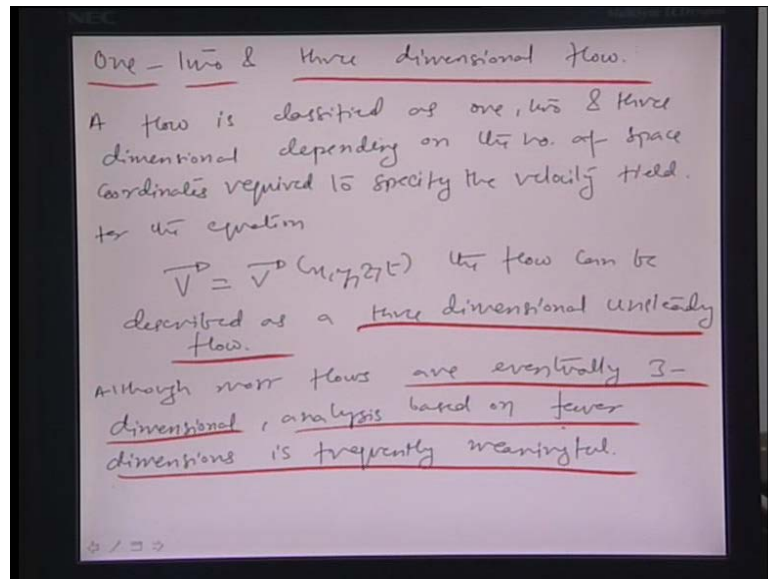 NEC
One - two & three dimensional flow.
A flow is classified as one, two & three
dimensional depending on the no. of space
coordinates required to specify the velocity field.
for the equation
V = V (x, y, z, t) the flow can be
described as a three dimensional unsteady
flow.
Although most flows are eventually 3-
dimensional, analysis based on fewer
dimensions is frequently meaningful.